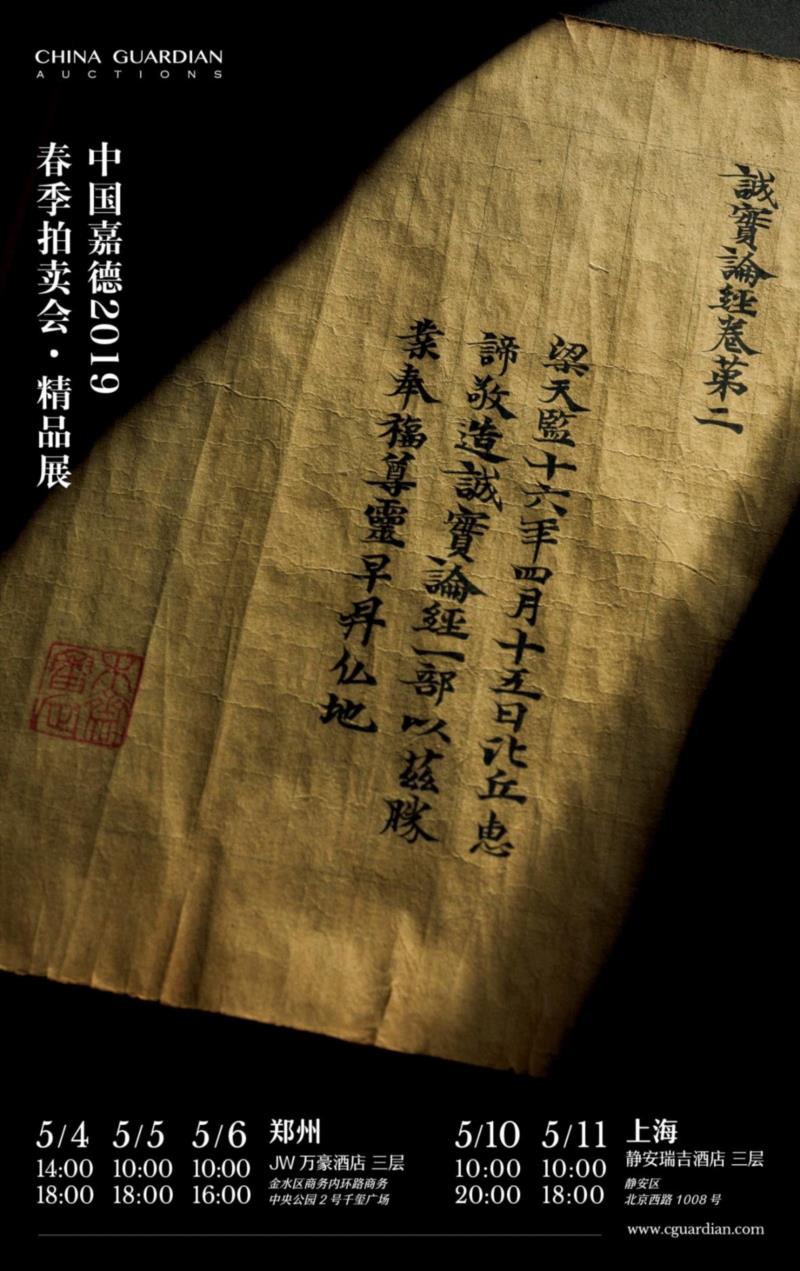 CHINA GUARDIAN
AUCTIONS
中国嘉德2019
春季拍卖会·精品展
誠實論經卷第二
梁天監十六年四月十五日比丘惠
諦敬造誠實論經一部以茲勝
業奉福尊靈早昇仏地
5/4
14:00
18:00
5/5
10:00
18:00
5/6
10:00
16:00
郑州
JW 万豪酒店 三层
金水区商务内环路商务
中央公园 2 号千玺广场
5/10
10:00
20:00
5/11
10:00
18:00
上海
静安瑞吉酒店 三层
静安区
北京西路 1008 号
www.cguardian.com